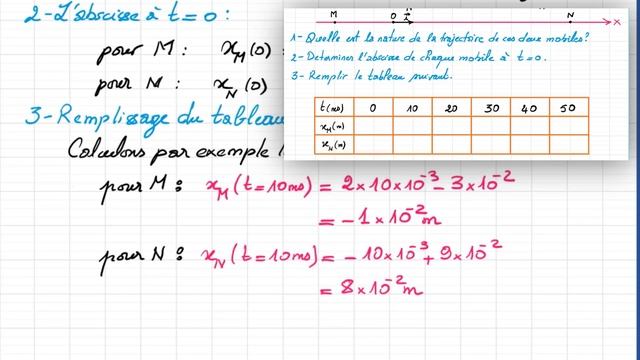 2-L'abscisse à t=0:
pour M: x_M(0)
pour N: x_N(0)
3-Remplissage du tableau
Calculons par exemple
pour M: x_M(t=10ms) = 2×10×10⁻³ - 3×10⁻²
= -1×10⁻² m
pour N: x_N(t=10ms) = -10×10⁻³ + 9×10⁻²
= 8×10⁻² m
M O N x
1- Quelle est la nature de la trajectoire de ces deux mobiles?
2- Determiner l'abscisse de chaque mobile à t=0.
3- Remplir le tableau suivant.
t(ms) 0 10 20 30 40 50
x_M(m)
x_N(m)